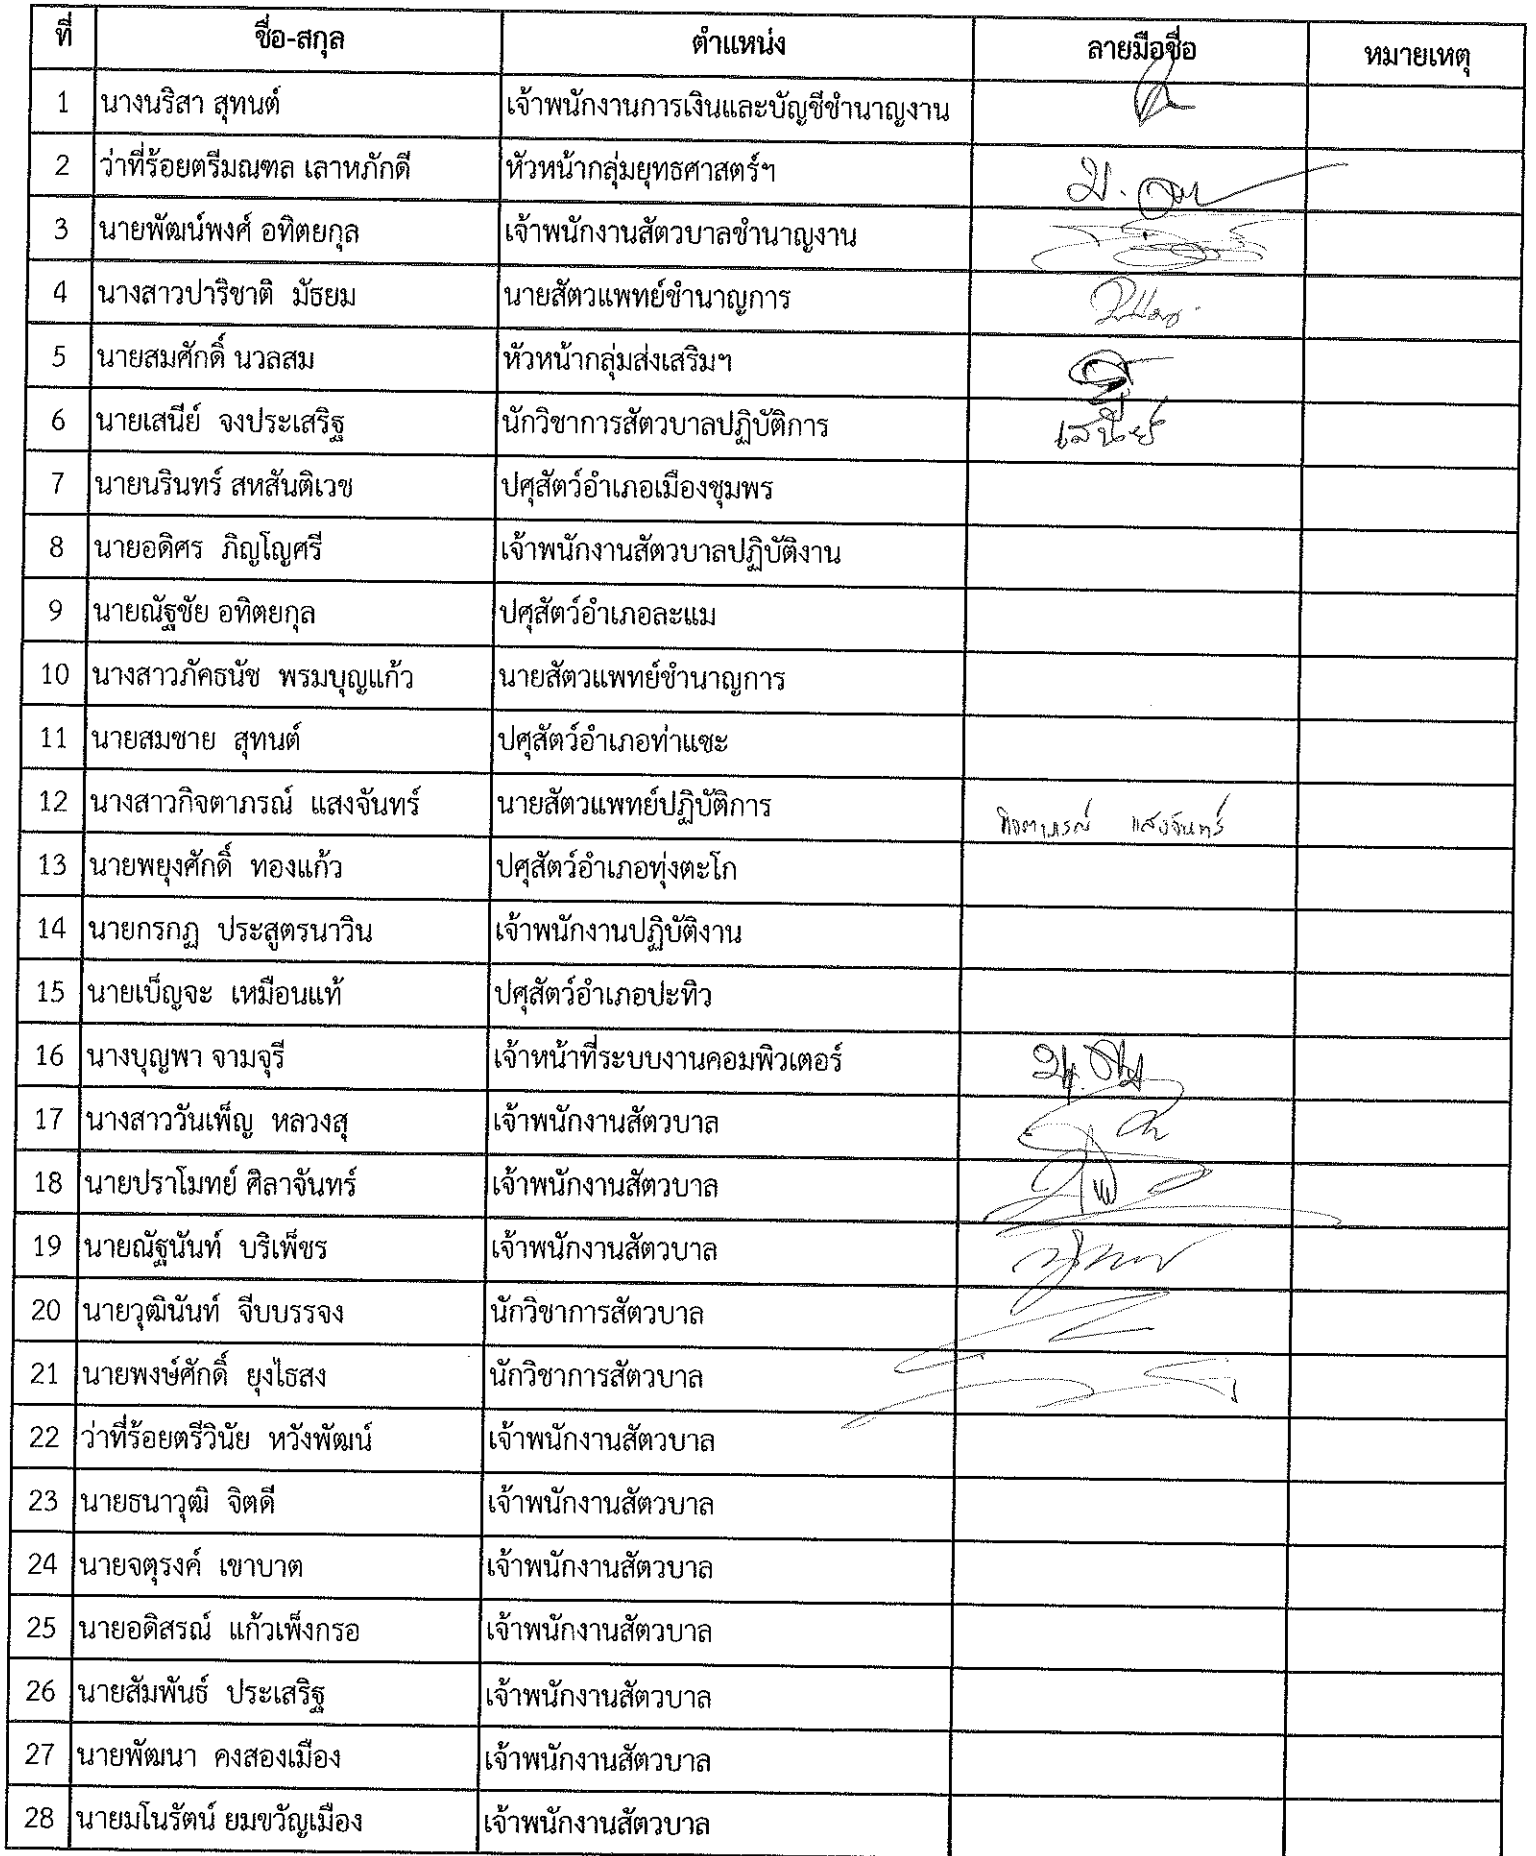 ที่ ชื่อ-สกุล ตำแหน่ง ลายมือชื่อ หมายเหตุ
1 นางนริสา สุทนต์ เจ้าพนักงานการเงินและบัญชีชำนาญงาน
2 ว่าที่ร้อยตรีมณฑล เลาหภักดี หัวหน้ากลุ่มยุทธศาสตร์ฯ
3 นายพัฒน์พงศ์ อทิตยกุล เจ้าพนักงานสัตวบาลชำนาญงาน
4 นางสาวปาริชาติ มัธยม นายสัตวแพทย์ชำนาญการ
5 นายสมศักดิ์ นวลสม หัวหน้ากลุ่มส่งเสริมฯ
6 นายเสนีย์ จงประเสริฐ นักวิชาการสัตวบาลปฏิบัติการ เสนีย์
7 นายนรินทร์ สหสันติเวช ปศุสัตว์อำเภอเมืองชุมพร
8 นายอดิศร ภิญโญศรี เจ้าพนักงานสัตวบาลปฏิบัติงาน
9 นายณัฐชัย อทิตยกุล ปศุสัตว์อำเภอละแม
10 นางสาวภัคธนัช พรมบุญแก้ว นายสัตวแพทย์ชำนาญการ
11 นายสมชาย สุทนต์ ปศุสัตว์อำเภอท่าแซะ
12 นางสาวกิจตาภรณ์ แสงจันทร์ นายสัตวแพทย์ปฏิบัติการ กิจตาภรณ์ แสงจันทร์
13 นายพยุงศักดิ์ ทองแก้ว ปศุสัตว์อำเภอทุ่งตะโก
14 นายกรกฏ ประสูตรนาวิน เจ้าพนักงานปฏิบัติงาน
15 นายเบ็ญจะ เหมือนแท้ ปศุสัตว์อำเภอปะทิว
16 นางบุญพา จามจุรี เจ้าหน้าที่ระบบงานคอมพิวเตอร์
17 นางสาววันเพ็ญ หลวงสุ เจ้าพนักงานสัตวบาล
18 นายปราโมทย์ ศิลาจันทร์ เจ้าพนักงานสัตวบาล
19 นายณัฐนันท์ บริเพ็ชร เจ้าพนักงานสัตวบาล
20 นายวุฒินันท์ จีบบรรจง นักวิชาการสัตวบาล
21 นายพงษ์ศักดิ์ ยุงไธสง นักวิชาการสัตวบาล
22 ว่าที่ร้อยตรีวินัย หวังพัฒน์ เจ้าพนักงานสัตวบาล
23 นายธนาวุฒิ จิตดี เจ้าพนักงานสัตวบาล
24 นายจตุรงค์ เขาบาต เจ้าพนักงานสัตวบาล
25 นายอดิสรณ์ แก้วเพ็งกรอ เจ้าพนักงานสัตวบาล
26 นายสัมพันธ์ ประเสริฐ เจ้าพนักงานสัตวบาล
27 นายพัฒนา คงสองเมือง เจ้าพนักงานสัตวบาล
28 นายมโนรัตน์ ยมขวัญเมือง เจ้าพนักงานสัตวบาล